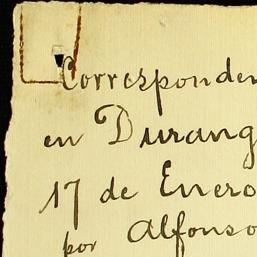 Corresponden
en Durang
17 de Enero
por Alfonso